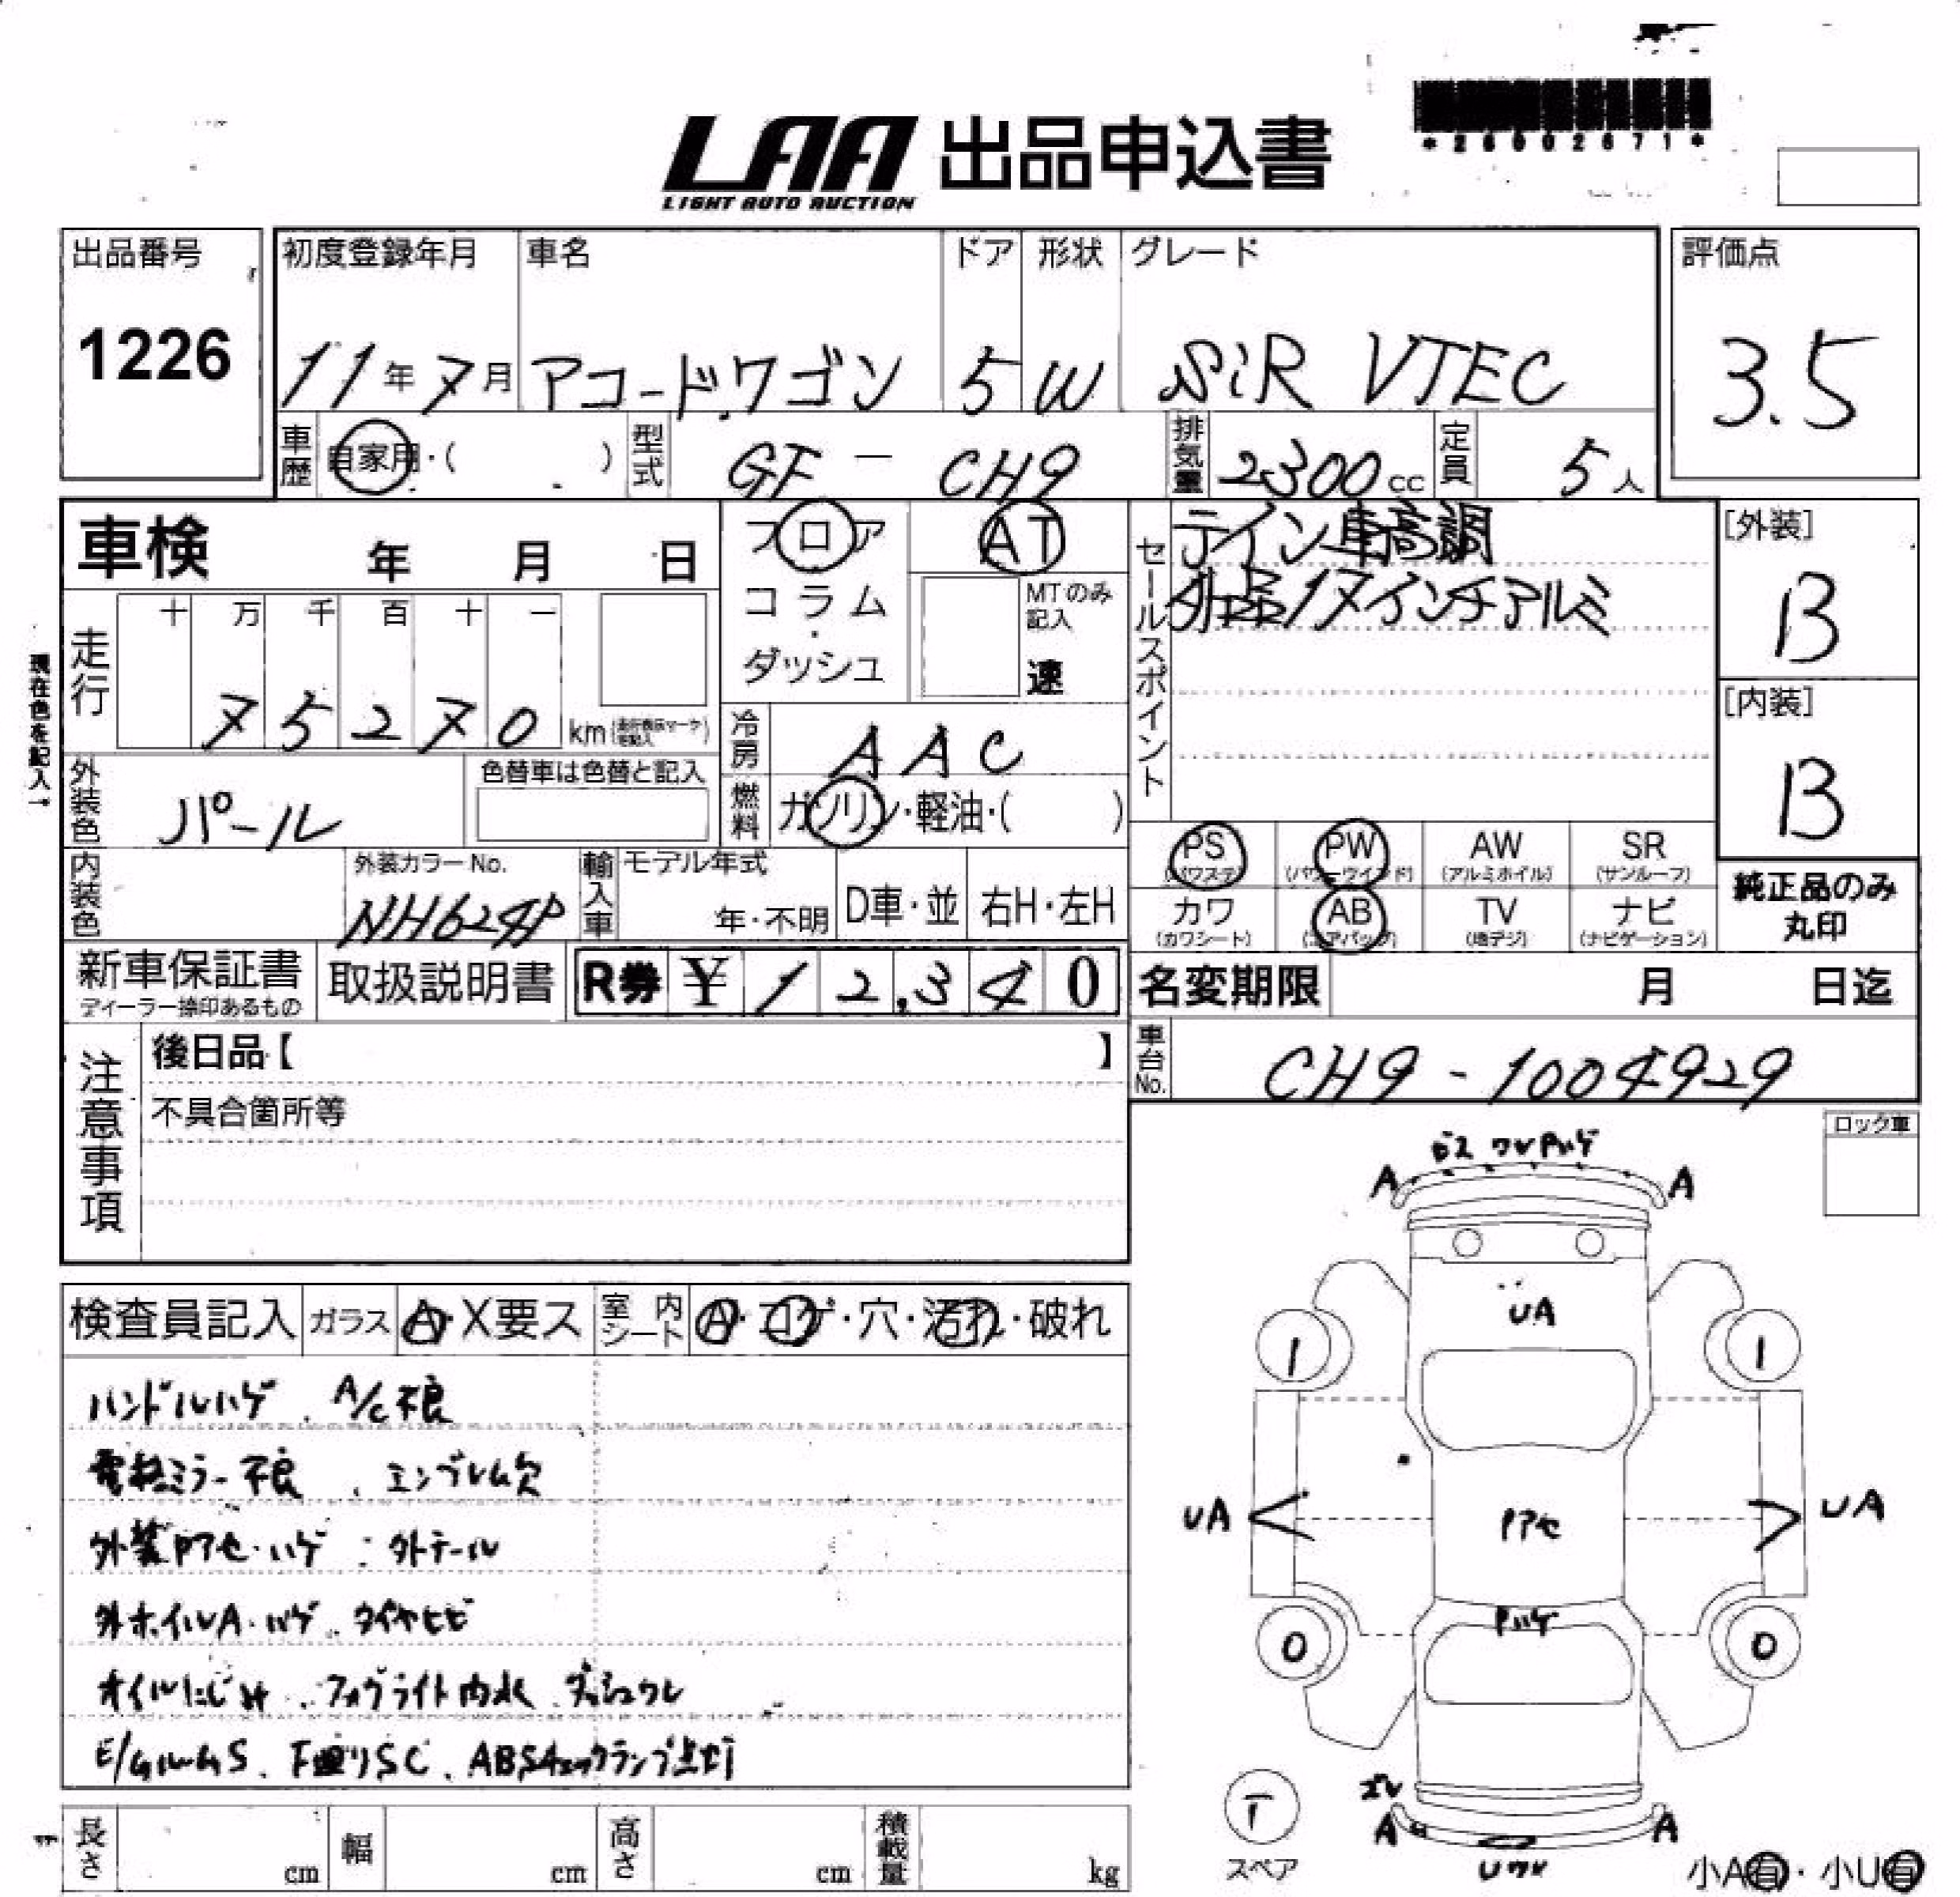 *26002671*
LAA 出品申込書
LIGHT AUTO AUCTION
出品番号 初度登録年月 車名 ドア 形状 グレード 評価点
1226 11年7月 アコードワゴン 5 W SiR VTEC 3.5
車歴 自家用・( ) 型式 GF - CH9 排気量 2300cc 定員 5人
車検 年 月 日 フロア AT セールスポイント テイン車高調 [外装]
コラム・ダッシュ MTのみ記入 速 社外品17インチアルミ B
走行 十 万 千 百 十 一
75270 km [内装]
現在色を記入→ 冷房 AAC B
外装色 パール 色替車は色替と記入 燃料 ガソリン・軽油・( )
PS (パワステ) PW (パワーウインド) AW (アルミホイル) SR (サンルーフ) 純正品のみ丸印
内装色 外装カラーNo. NH624P 輸入車 モデル年式 年・不明 D車・並 右H・左H
カワ (カワシート) AB (エアバック) TV (地デジ) ナビ (ナビゲーション)
新車保証書 ディーラー捺印あるもの 取扱説明書 R券 ¥12,340 名変期限 月 日迄
注意事項 後日品【 】 車台No. CH9-1004929
不具合箇所等
ロック車
ワレ Pハゲ
A A
UA
1 1
検査員記入 ガラス A・X要ス 室内シート A・コゲ・穴・汚れ・破れ
ハンドルハゲ、A/C不良
電格ミラー不良、エンブレム欠
外装Pアセ・ハゲ 外テール
UA Pアセ UA
外ホイルA・ハゲ、タイヤヒビ
0 Pハゲ 0
オイルにじみ、フォグライト内水、ダッシュワレ
E/GルームS、下廻りSC、ABSチェックランプ点灯
T
スペア
ズレ
A A
Uワレ
長さ cm 幅 cm 高さ cm 積載量 kg
小A有・小U有